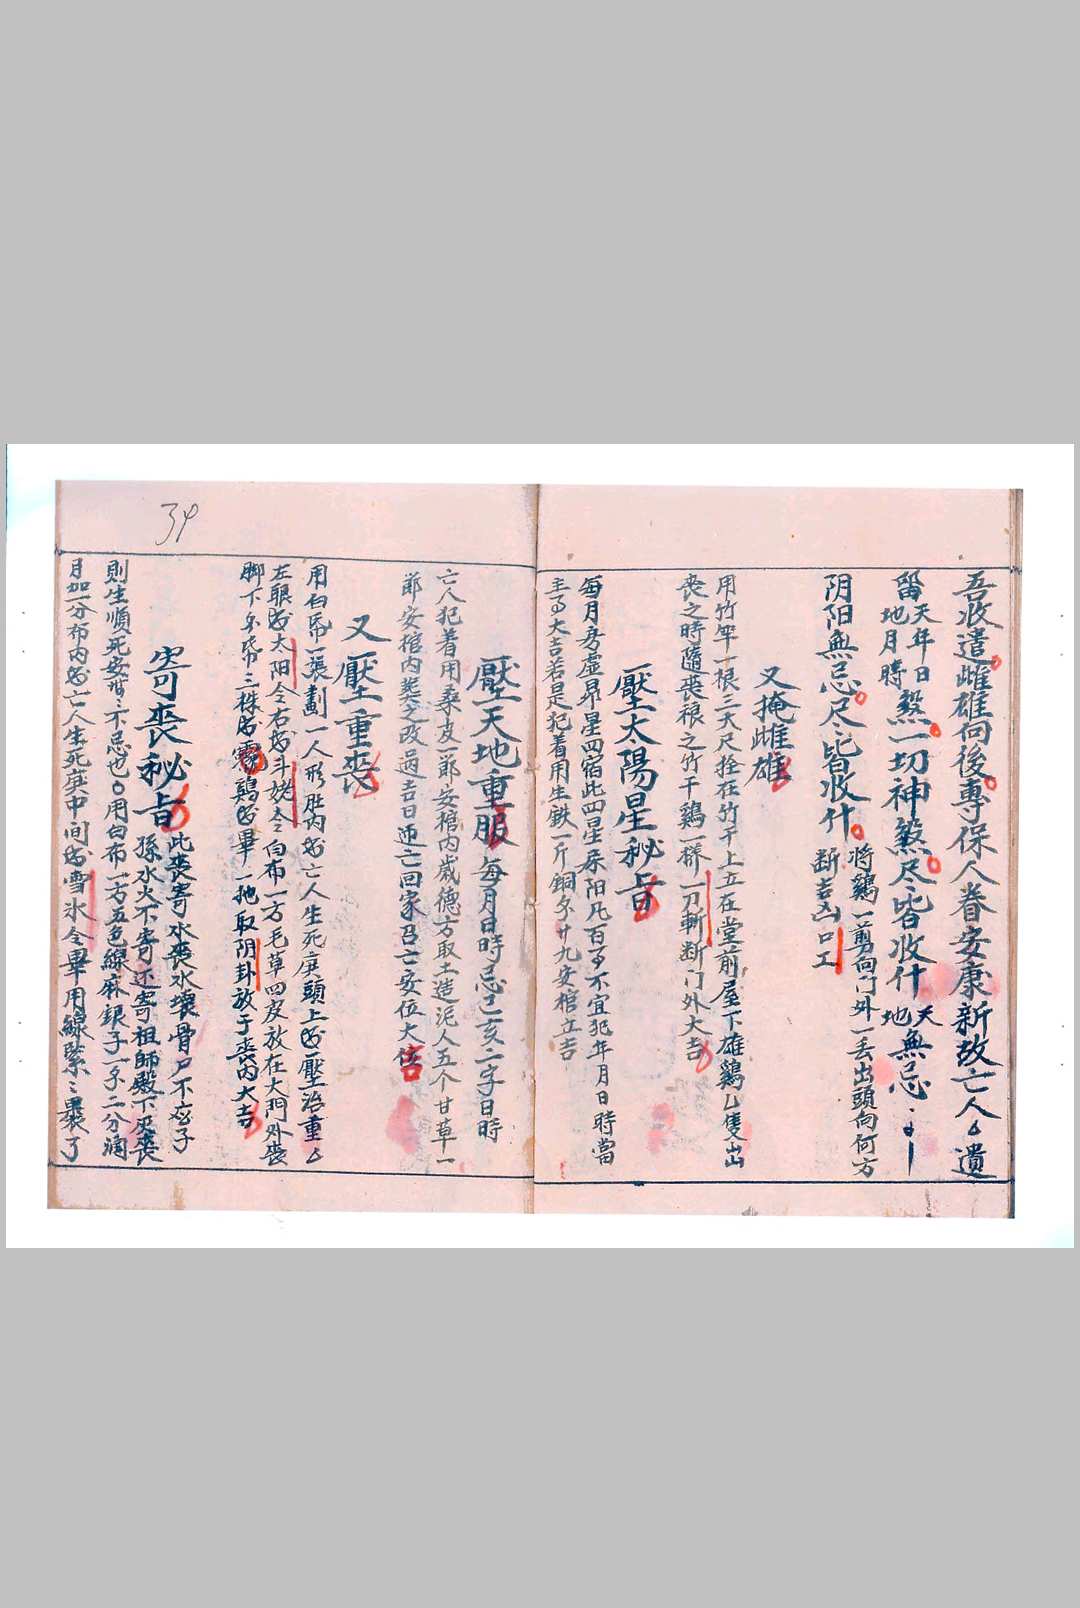 吾收遣雌雄向後專保人眷安康新故亡人厶遺
留天年日地月時煞一切神煞尽皆收什天地無忌
阴阳無忌尽皆收什將鷄一剪向門外一丢出頭向何方
断吉凶口工
又掩雌雄
用竹竿一根三丈尺拴在竹干上立在堂前屋下雄鷄乙隻出
喪之時隨喪樑之竹干鷄一樣一刀斬断门外大吉
壓太陽星秘旨
每月房虚昴星四宿此四星朶阳凡百事不宜犯年月日時當
主事大吉若是犯着用生鉄一斤銅錢廿九安棺立吉
壓天地重服每月日時忌己亥二字日時
亡人犯着用桑皮一節安棺内歲德方取土造泥人五个甘草一
節安棺内葬之改過吉日迎亡回家召亡安位大吉
又壓重喪
用白帋一張劃一人形肚内书亡人生死庚頭上书壓治重厶
左眼书太阳仝右书斗姥仝白布一方毛草四皮放在大門外喪
脚下錢帋三株书鷄书畢一地取阴卦放于喪内大吉
寄喪秘旨此喪寄水喪水壞骨户不在子
孫水火不寄还寄祖師殿下灭喪
則生順死安世不忌也〇用白布一方五色線麻銀子一錢二分潤
月加一分布内书亡人生死庚中间书雪氷仝畢用線緊緊裹了
34